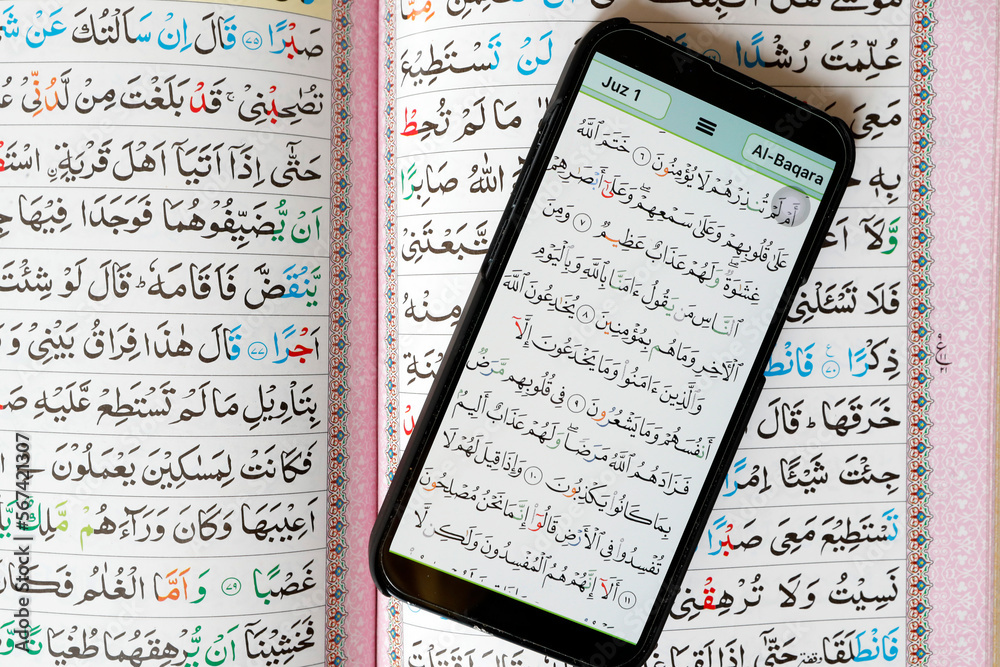 صَبْرًا ٧٥ قَالَ اِنْ سَاَلْتُكَ عَنْ
تُصٰحِبْنِيْ ۚ قَدْ بَلَغْتَ مِنْ لَّدُنِّيْ
حَتّٰٓى اِذَآ اَتَيَآ اَهْلَ قَرْيَةِۨ
اَنْ يُّضَيِّفُوْهُمَا فَوَجَدَا فِيْهَا
يَّنْقَضَّ فَاَقَامَهٗ ؕ قَالَ لَوْ شِئْتَ
اَجْرًا ٧٧ قَالَ هٰذَا فِرَاقُ بَيْنِيْ وَ
بِتَاْوِيْلِ مَا لَمْ تَسْتَطِعْ عَّلَيْهِ
فَكَانَتْ لِمَسٰكِيْنَ يَعْمَلُوْنَ
اَعِيْبَهَا وَكَانَ وَرَآءَهُمْ مَّلِكٌ
غَصْبًا ٧٩ وَاَمَّا الْغُلٰمُ
فَخَشِيْنَآ اَنْ يُّرْهِقَهُمَا
مِمَّا
عُلِّمْتَ رُشْدًا لَنْ تَسْتَطِيْعَ
مَعِيَ مَا لَمْ تُحِطْ
بِهٖ اللّٰهُ صَابِرًا
وَّلَآ اتَّبَعْتَنِيْ
فَلَا تَسْـَٔلْنِيْ مِنْهُ
ذِكْرًا ٧٠
خَرَقَهَا ؕ قَالَ
جِئْتَ شَيْـًٔا اِمْرًا
تَسْتَطِيْعَ مَعِيَ صَبْرًا
نَسِيْتُ وَلَا تُرْهِقْنِيْ
فَانْطَلَقَا حَتّٰٓى اِذَا لَقِيَا
Juz 1
Al-Baqara
أَمْ لَمْ تُنذِرْهُمْ لَا يُؤْمِنُونَ ٦ خَتَمَ ٱللَّهُ
عَلَىٰ قُلُوبِهِمْ وَعَلَىٰ سَمْعِهِمْ ۖ وَعَلَىٰٓ أَبْصَٰرِهِمْ
غِشَٰوَةٌ ۖ وَلَهُمْ عَذَابٌ عَظِيمٌ ٧ وَمِنَ
ٱلنَّاسِ مَن يَقُولُ ءَامَنَّا بِٱللَّهِ وَبِٱلْيَوْمِ
ٱلْءَاخِرِ وَمَا هُم بِمُؤْمِنِينَ ٨ يُخَٰدِعُونَ ٱللَّهَ
وَٱلَّذِينَ ءَامَنُوا۟ وَمَا يَخْدَعُونَ إِلَّآ
أَنفُسَهُمْ وَمَا يَشْعُرُونَ ٩ فِى قُلُوبِهِم مَّرَضٌ
فَزَادَهُمُ ٱللَّهُ مَرَضًا ۖ وَلَهُمْ عَذَابٌ أَلِيمٌۢ
بِمَا كَانُوا۟ يَكْذِبُونَ ١٠ وَإِذَا قِيلَ لَهُمْ لَا
تُفْسِدُوا۟ فِى ٱلْأَرْضِ قَالُوٓا۟ إِنَّمَا نَحْنُ مُصْلِحُونَ
١١ أَلَآ إِنَّهُمْ هُمُ ٱلْمُفْسِدُونَ وَلَٰكِن لَّا
Adobe Stock | #567421307
Adobe Stock